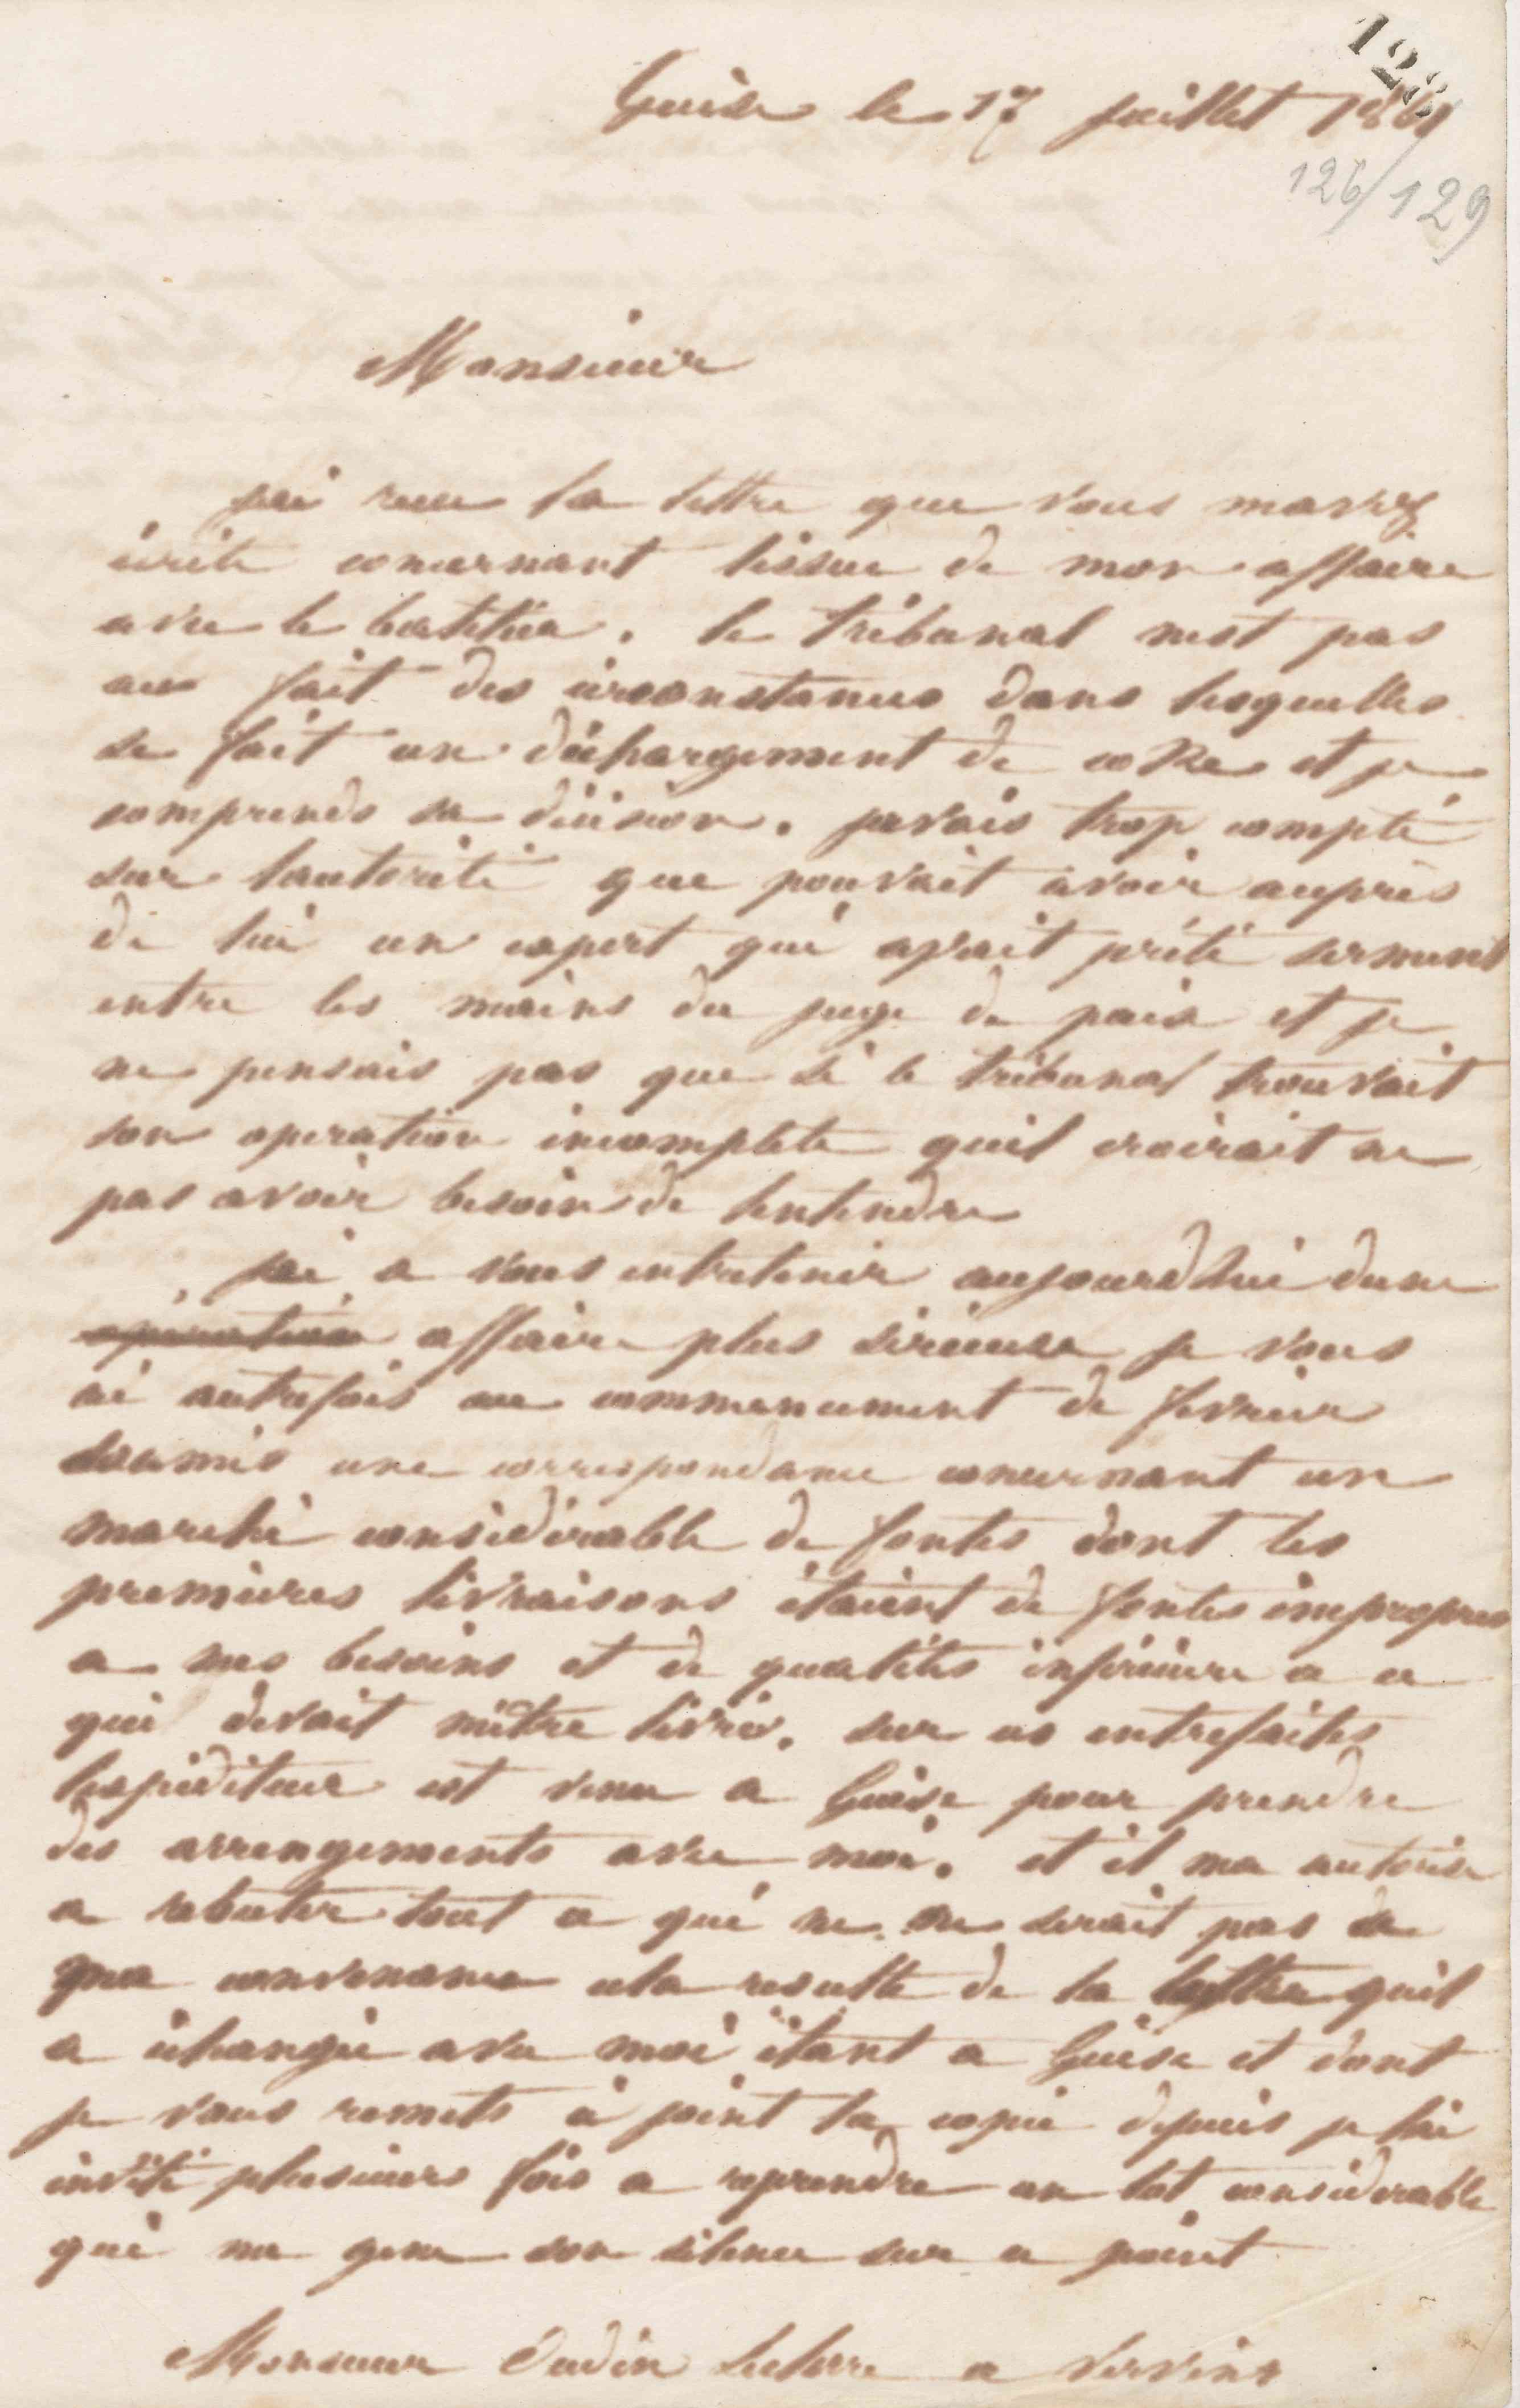 128
Guise le 17 juillet 1861
126/129
Monsieur
jai recu la lettre que vous mavez
ecrite concernant lissue de mon affaire
avec le batelier. le tribunal nest pas
au fait des circonstances dans lesquelles
se fait un déchargement de coke et je
comprends sa décision. javais trop compté
sur lautorité que pouvait avoir aupres
de lui un expert qui avait prété serment
entre les mains du juge de paix et je
ne pensais pas que si le tribunal trouvait
son operation incomplete quil croirait ne
pas avoir besoin de lentendre
jai a vous entretenir aujourdhui dune
opération affaire plus sérieuse je vous
ai autrefois au commencement de fevrier
soumis une correspondance concernant un
marché considérable de fontes dont les
premieres livraisons étaient de fontes impropres
a mes besoins et de qualités inférieure a ce
qui devait métre livré. sur ces entrefaites
lexpéditeur est venu a Guise pour prendre
des arrengements avec moi. et il ma autorisé
a rebuter tout ce qui ne me serait pas de
ma convenance cela resulte de la lettre quil
a échangée avec moi étant a Guise et dont
je vous remets ci joint la copie depuis je lai
invité plusieurs fois a reprendre un lot considerable
qui me gene son silence sur ce point
Monsieur Oudin Leclere a Vervins